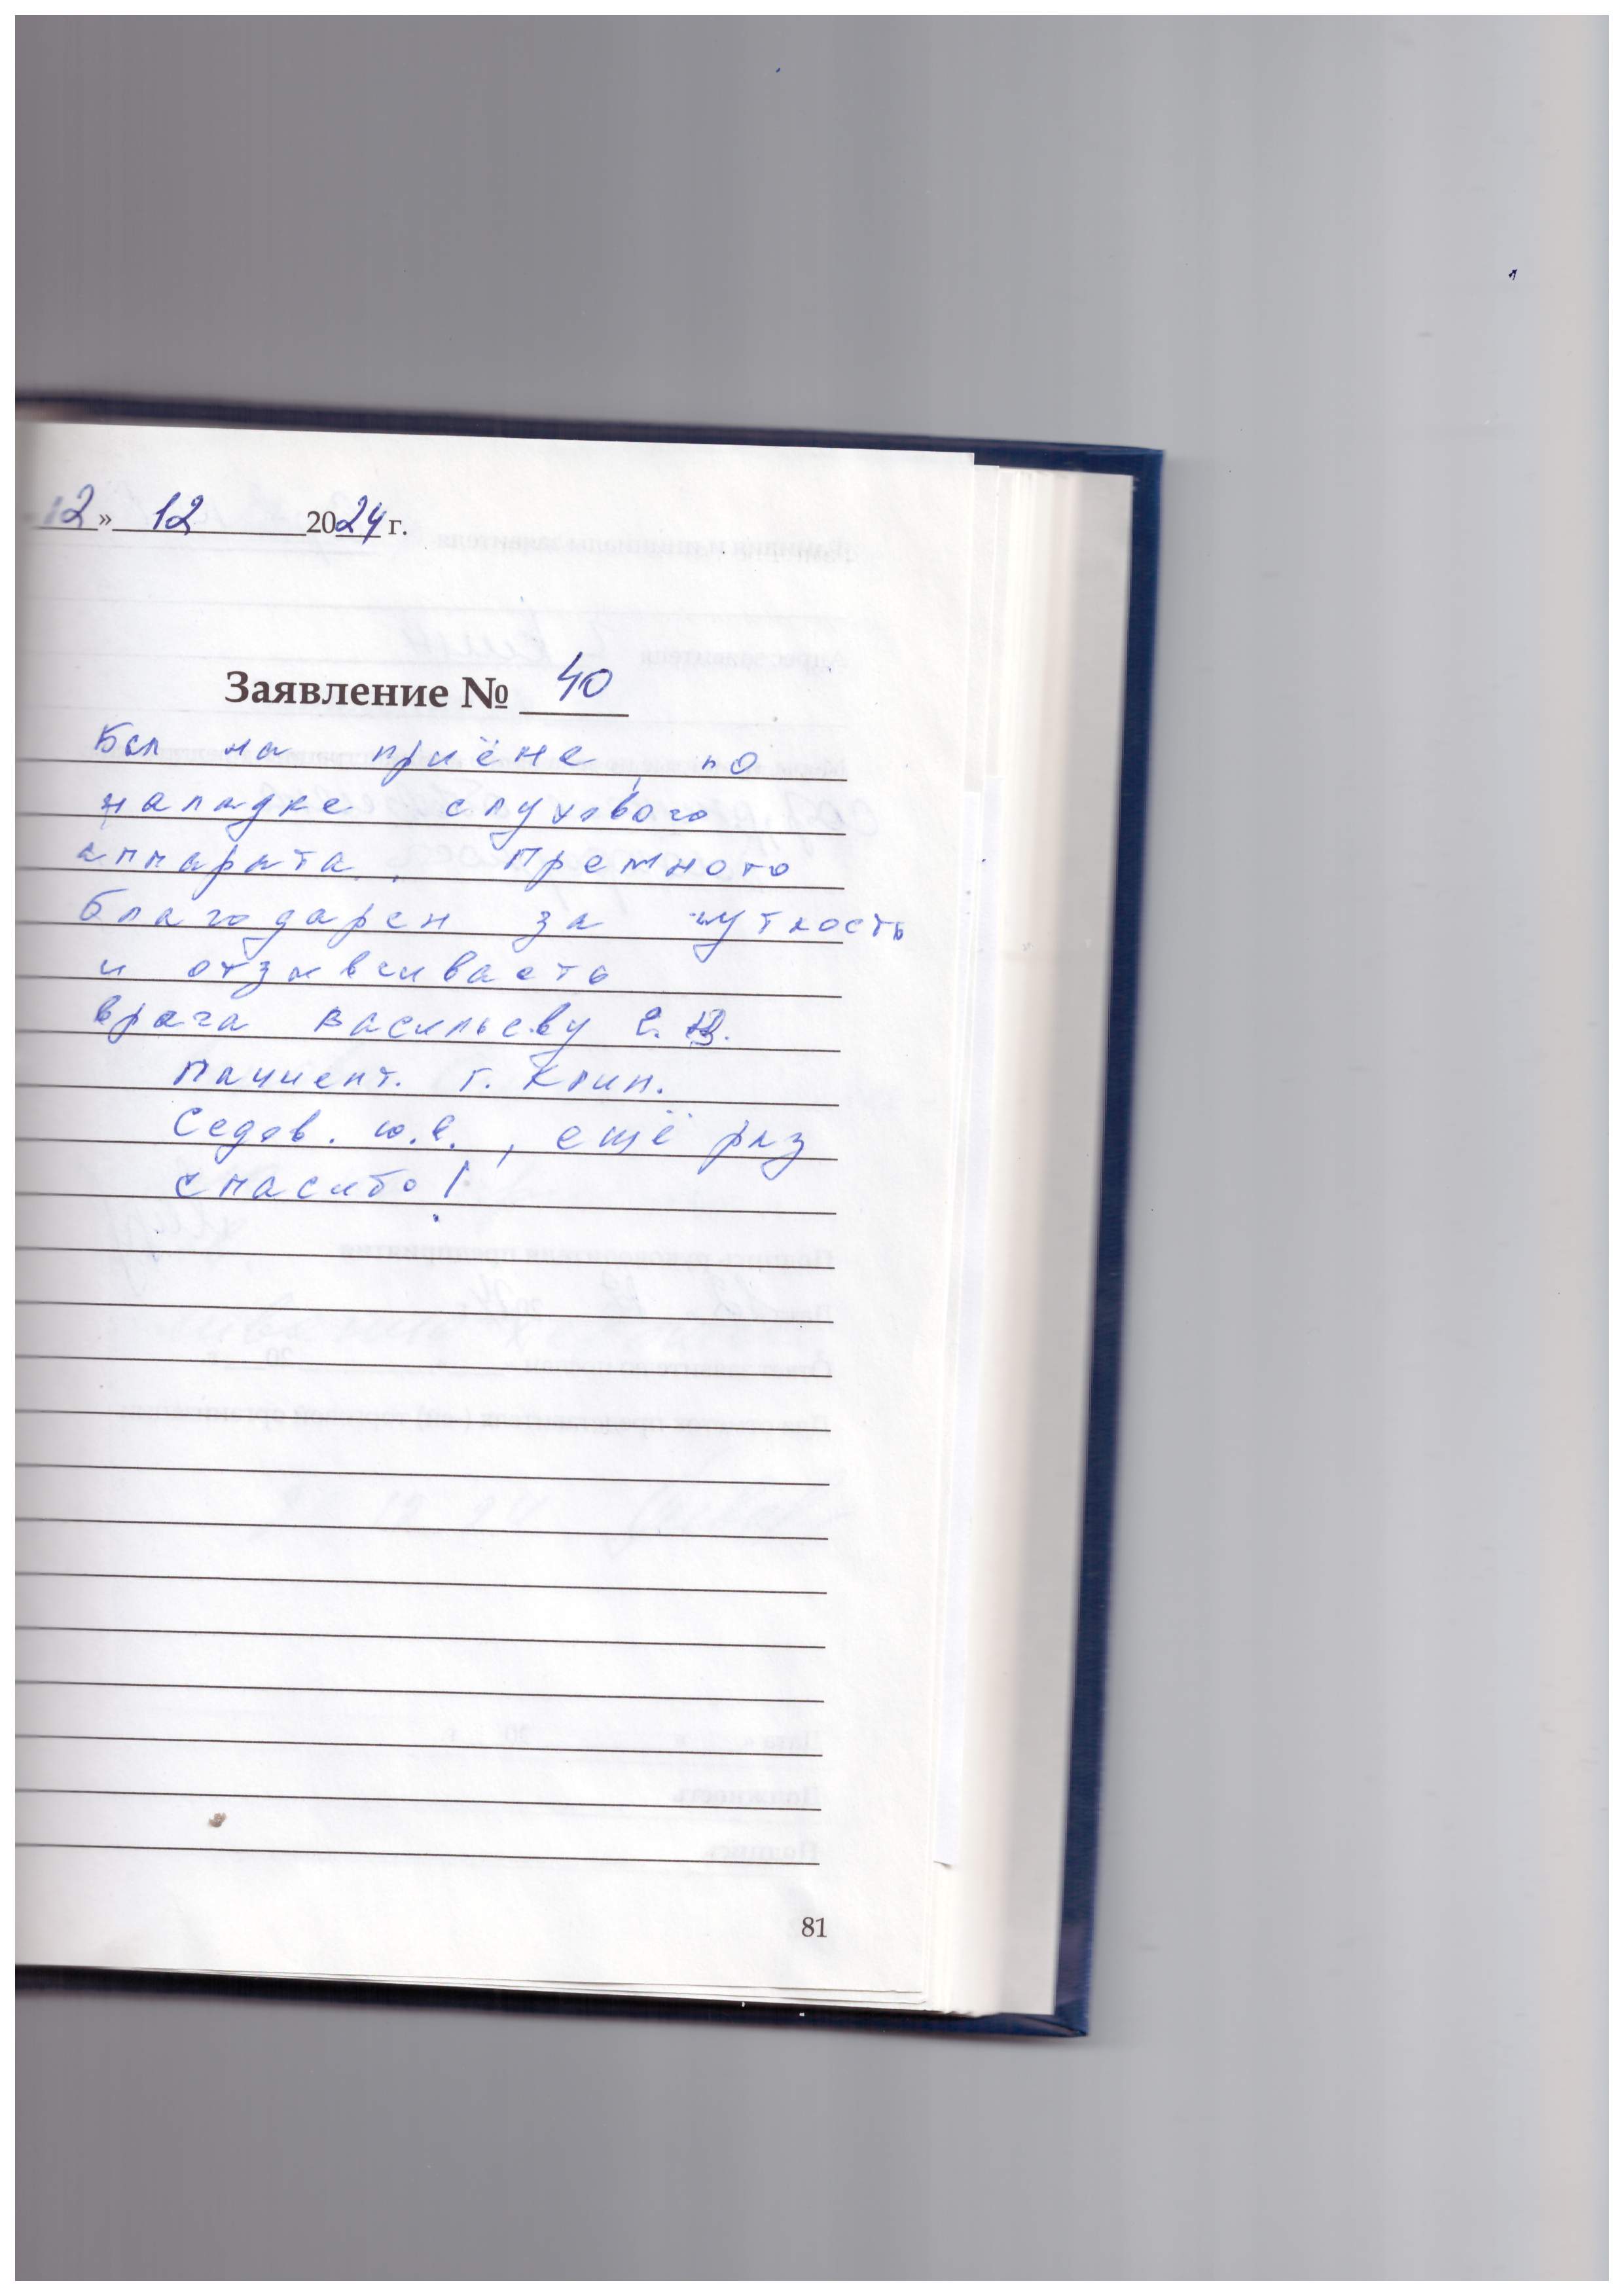 12» 12 2024 г.
Заявление № 40
Был на приёме, по
наладке слухового
аппарата. Премного
благодарен за чуткость
и отзывчивасть
врача Васильеву Е. В.
Пациент. г. Клин.
Седов. Ю.Е., ещё раз
спасибо!
81